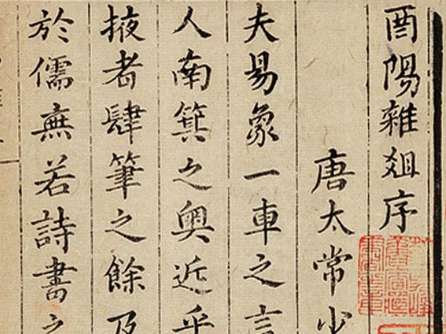 酉陽雜爼序
唐太常少
夫易象一車之言
人南箕之奧近乎
掖者肆筆之餘及
於儒無若詩書之